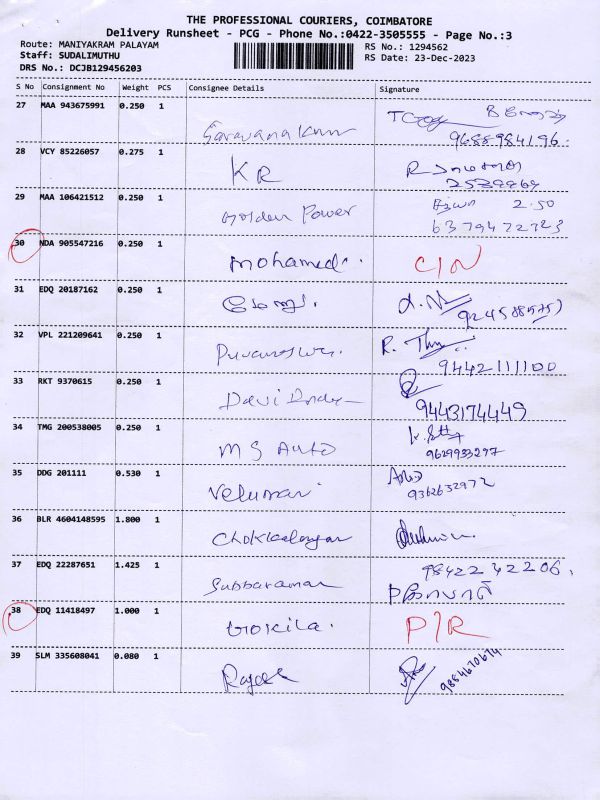 THE PROFESSIONAL COURIERS, COIMBATORE
Delivery Runsheet - PCG - Phone No.:0422-3505555 - Page No.:3
Route: MANIYAKRAM PALAYAM
RS No.: 1294562
Staff: SUDALIMUTHU
RS Date: 23-Dec-2023
DRS No.: DCJB129456203
S No Consignment No Weight PCS Consignee Details Signature
27 MAA 943675991 0.250 1 Saravanakumar
9688984196.
28 VCY 85226057 0.275 1 KR
29 MAA 106421512 0.250 1 Golden Power 2.50
6379472723
30 NDA 905547216 0.250 1 Mohamed. C/N
31 EDQ 20187162 0.250 1
32 VPL 221209641 0.250 1
9442111100
33 RKT 9370615 0.250 1
9443174449
34 TMG 200538005 0.250 1 MS Auto
9629933297
35 DDG 201111 0.530 1 Velumani
9362632972
36 BLR 4604148595 1.800 1
37 EDQ 22287651 1.425 1 Subbaraman 98422 42206.
38 EDQ 11418497 1.000 1 Gokila. P/R
39 SLM 335608041 0.080 1 Rajesh 9884670674